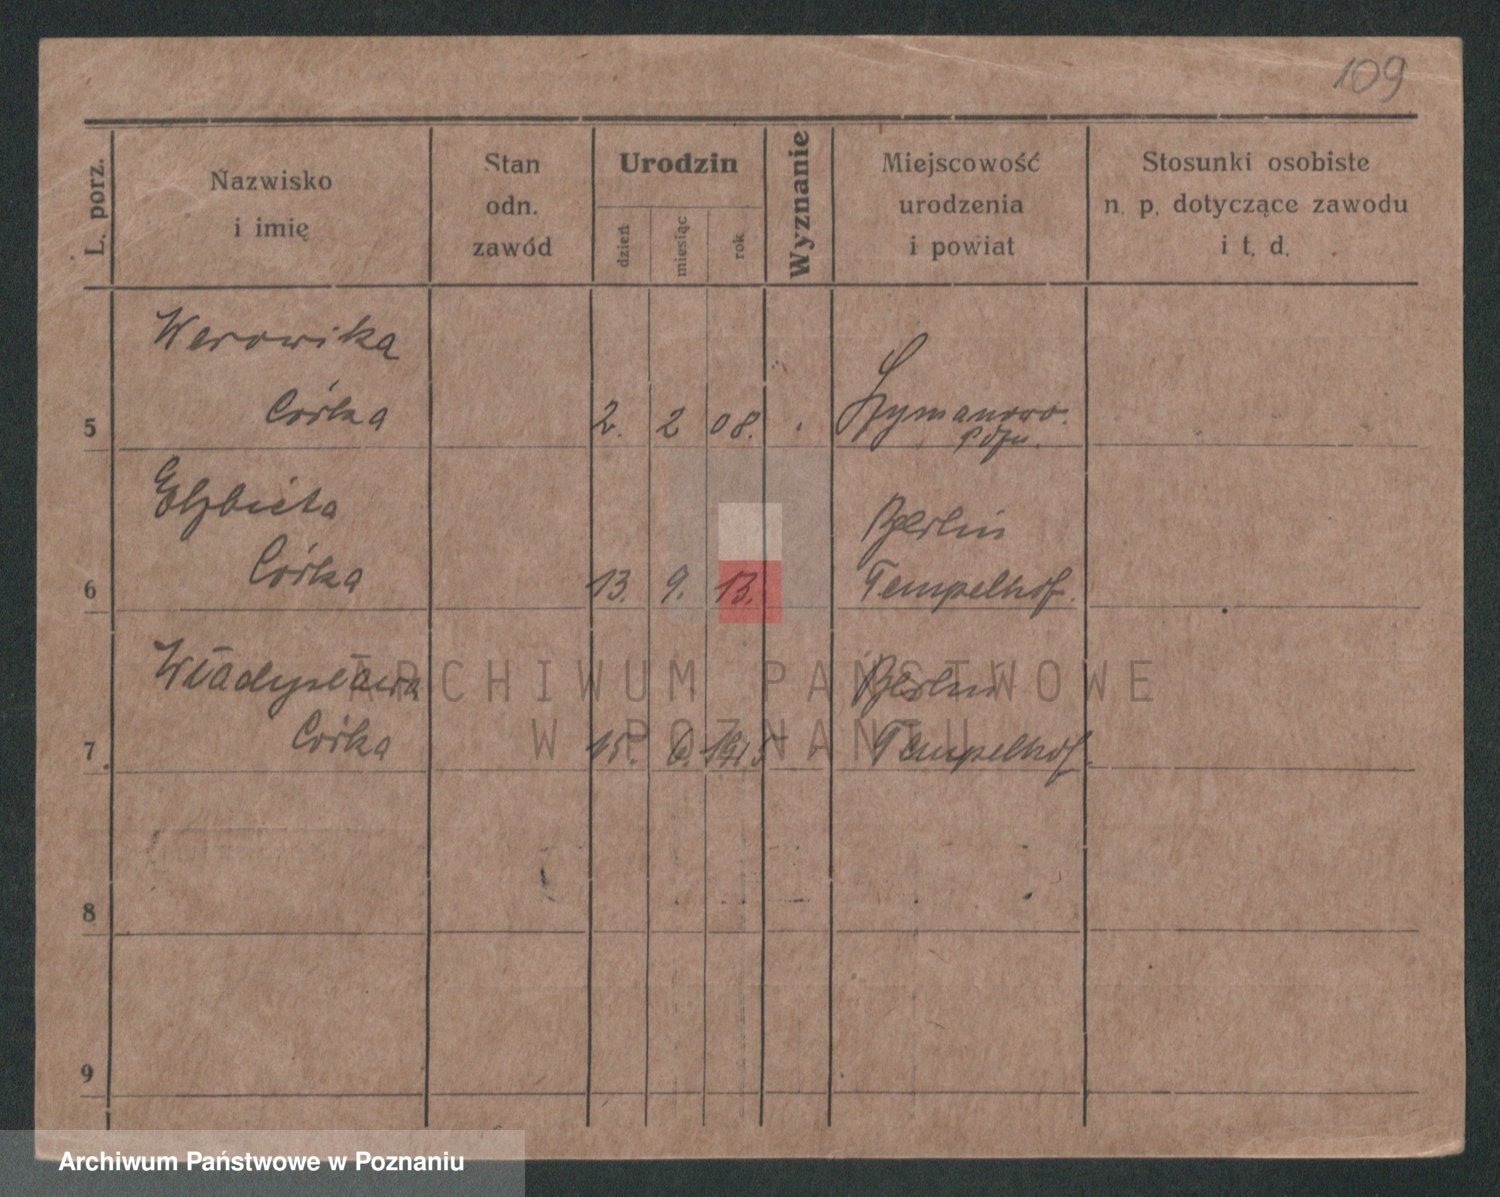 109
L. porz.
Nazwisko
i imię
Stan
odn.
zawód
Urodzin
dzień
miesiąc
rok
Wyznanie
Miejscowość
urodzenia
i powiat
Stosunki osobiste
n. p. dotyczące zawodu
i t. d.
Weronika
Córka
5 2. 2 08. Szymanowo.
Elżbieta
Berlin
Córka
6 13. 9. 13. Tempelhof.
Władysława
Berlin
ARCHIWUM PAŃSTWOWE
W POZNANIU
Córka
7 15. 6. 1915 Tempelhof.
8
9
Archiwum Państwowe w Poznaniu